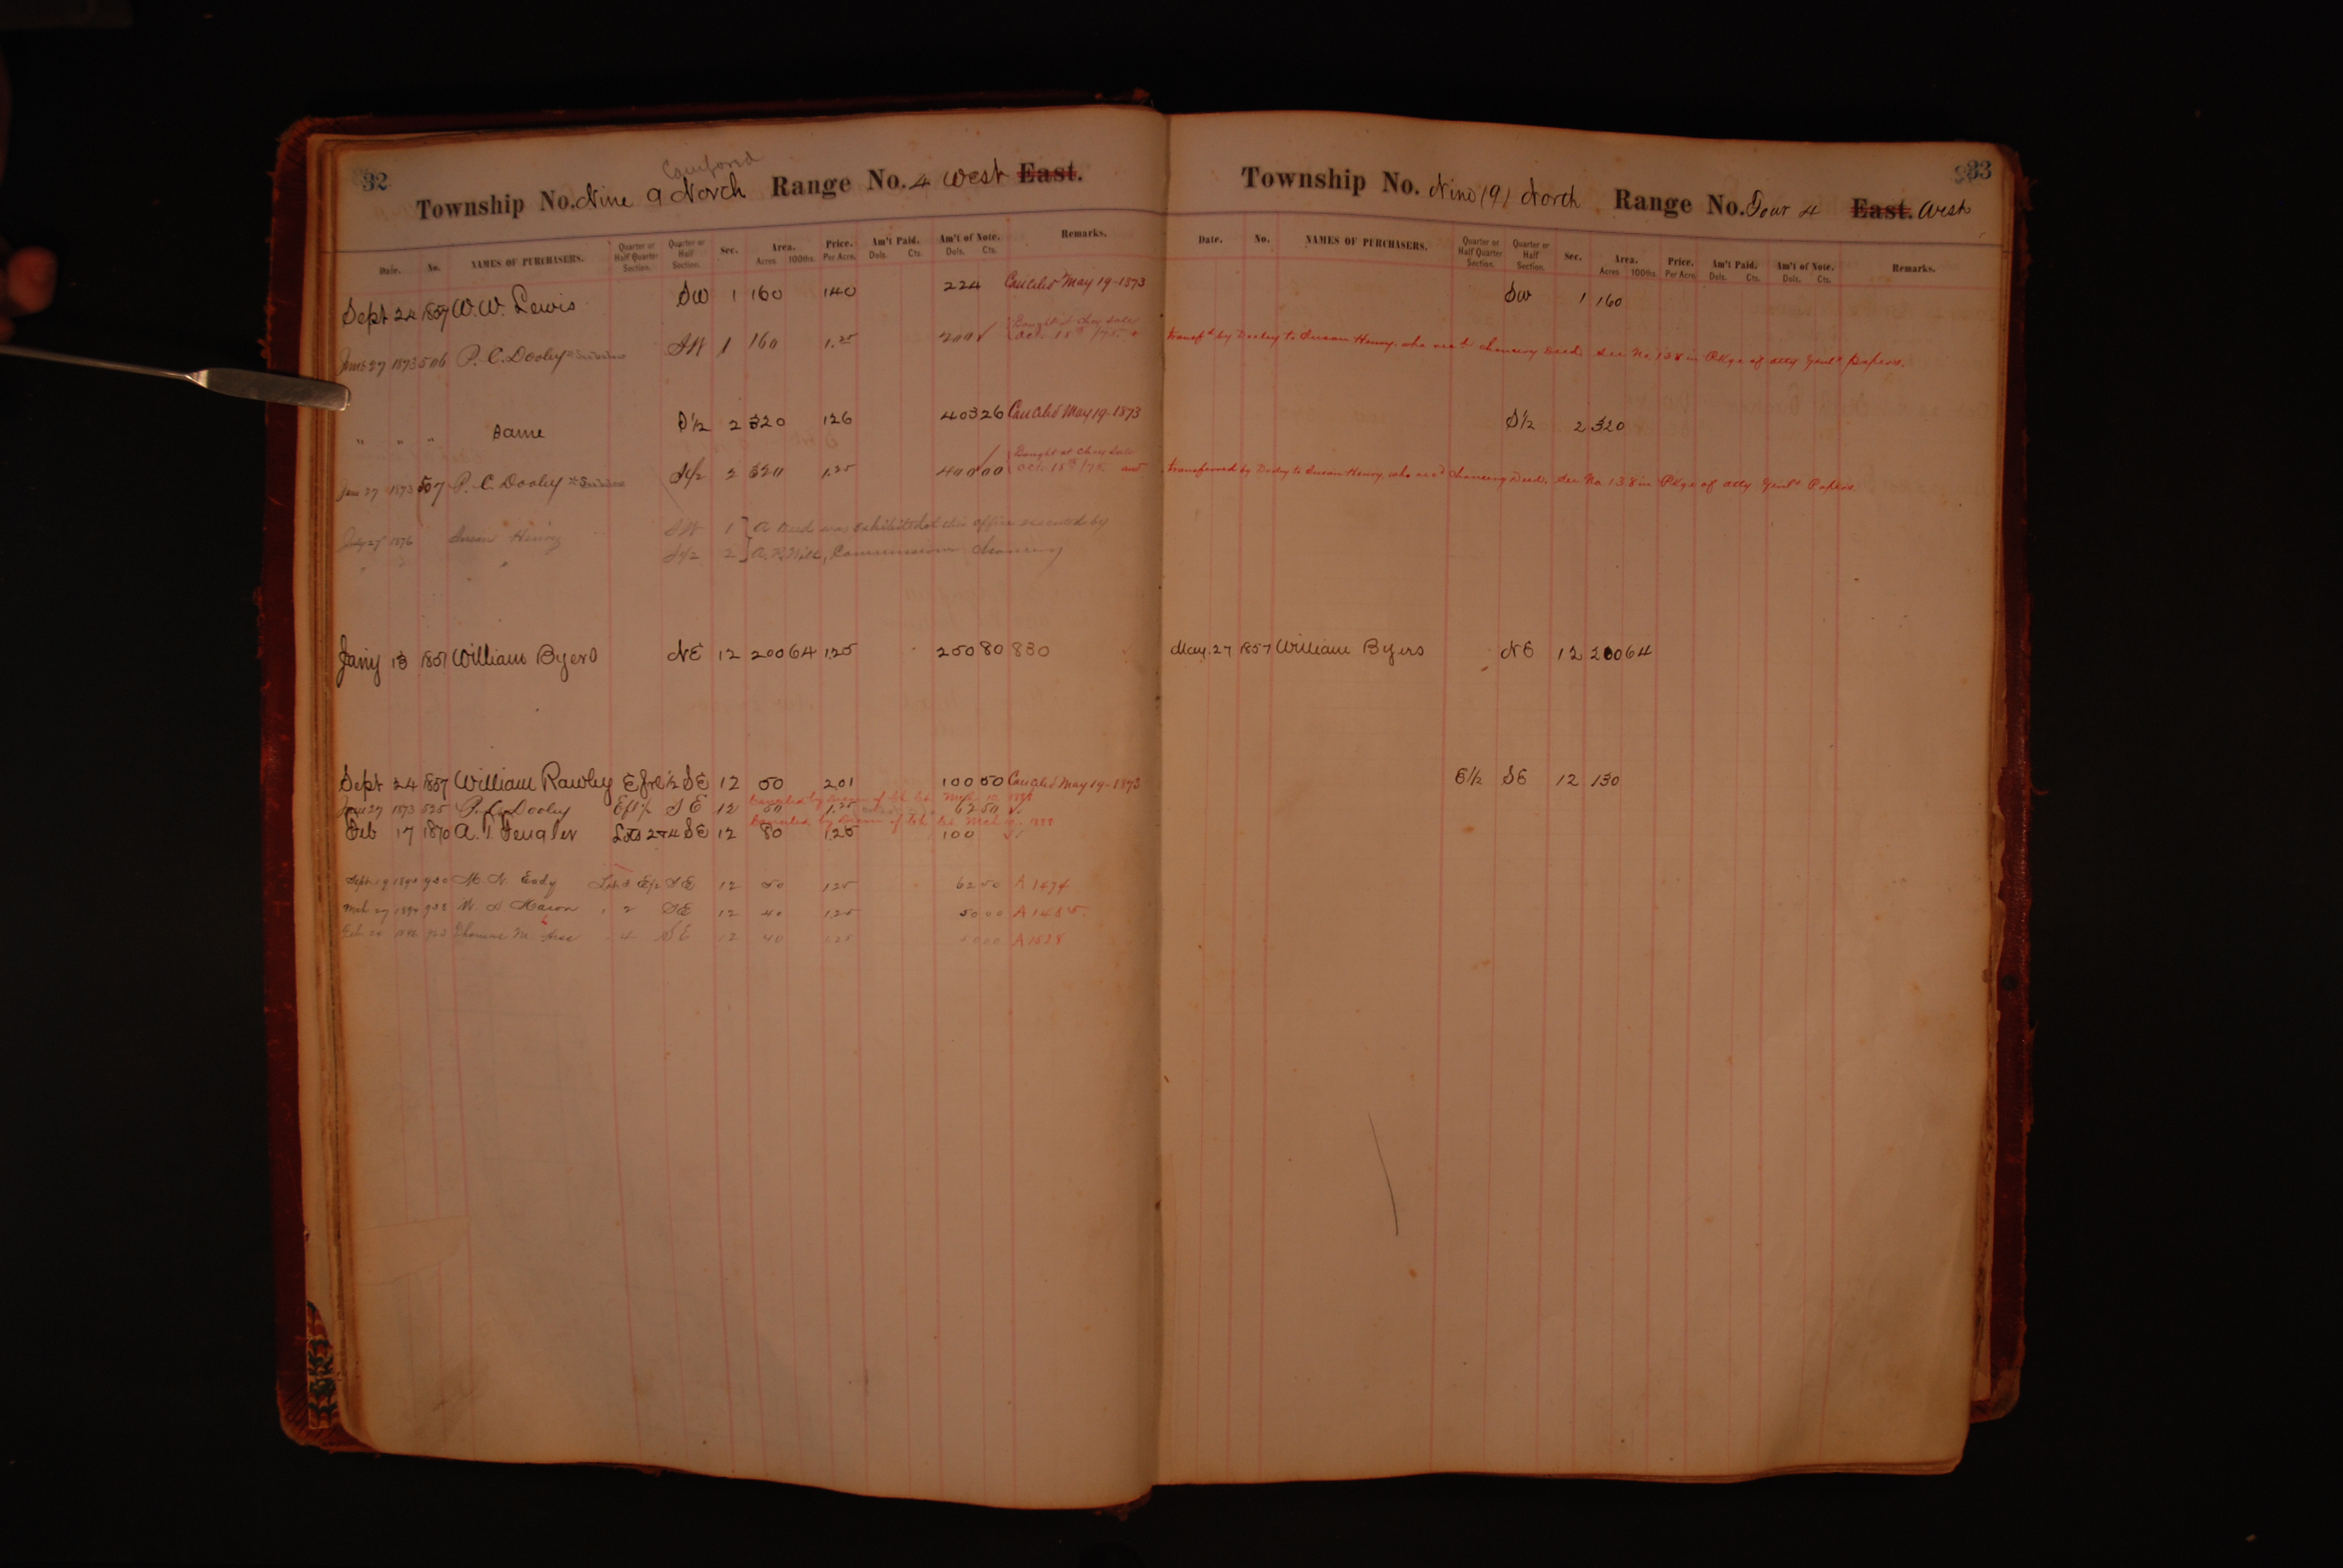 32
Compared
Township No. Nine 9 North Range No. 4 West East.
Date. No. NAMES OF PURCHASERS. Quarter or Half Quarter Section. Quarter or Half Section. Sec. Area. Acres 100ths. Price. Per Acre. Am't Paid. Dols. Cts. Am't of Note. Dols. Cts. Remarks.
Sept 24 1857 W. W. Lewis SW 1 160 140 224 Canceled May 19-1873
June 27 1873 506 P. C. Dooley * See below SW 1 160 1.25 200 ✓ Bought at Chcy Sale
Oct. 18th /75. +
" " " Same S 1/2 2 320 126 403 26 Canceled May 19-1873
June 27 1873 507 P. C. Dooley * See below S 1/2 2 320 1.25 400 00 ✓ Bought at Chcy Sale
Oct. 18th /75 and
July 27 1876 Susan Henry SW 1 } A Deed was exhibited at this office executed by
" " S 1/2 2 } Commissioner Chancery
Jany 13 1851 William Byers NE 12 200 64 1.25 250 80 830
Sept 24 1857 William Rawley E frl 1/2 SE 12 50 201 100 50 Canceled May 19-1873
June 27 1873 525 P. C. Dooley E f 1/2 SE 12 50 1.25 62 50 ✓
Feb 17 1870 A. T. Fengler Lots 2 & 4 SE 12 80 1.25 100 ✓
Sept 19 930 M. N. Eady E 1/2 SE 12 50 1.25 62 50 A 1474
Mch 27 938 W. D. Mason " 2 SE 12 40 1.25 50 00 A 1485.
Thomas M. " 4 SE 12 40 1.25 50 00 A 1528
33
Township No. Nine (9) North Range No. Four 4 East. West
Date. No. NAMES OF PURCHASERS. Quarter or Half Quarter Section. Quarter or Half Section. Sec. Area. Acres 100ths. Price. Per Acre. Am't Paid. Dols. Cts. Am't of Note. Dols. Cts. Remarks.
SW 1 160
transfd by Dooley to Susan Henry, who recd chancery Deed. See No. 138 in Pkge of Atty Genl's papers.
S 1/2 2 320
transferred by Dooley to Susan Henry, who recd Chancery Deed, See No 138 in Pkge of Atty Genl's Papers
May. 27 1857 William Byers NE 12 200 64
E 1/2 SE 12 130